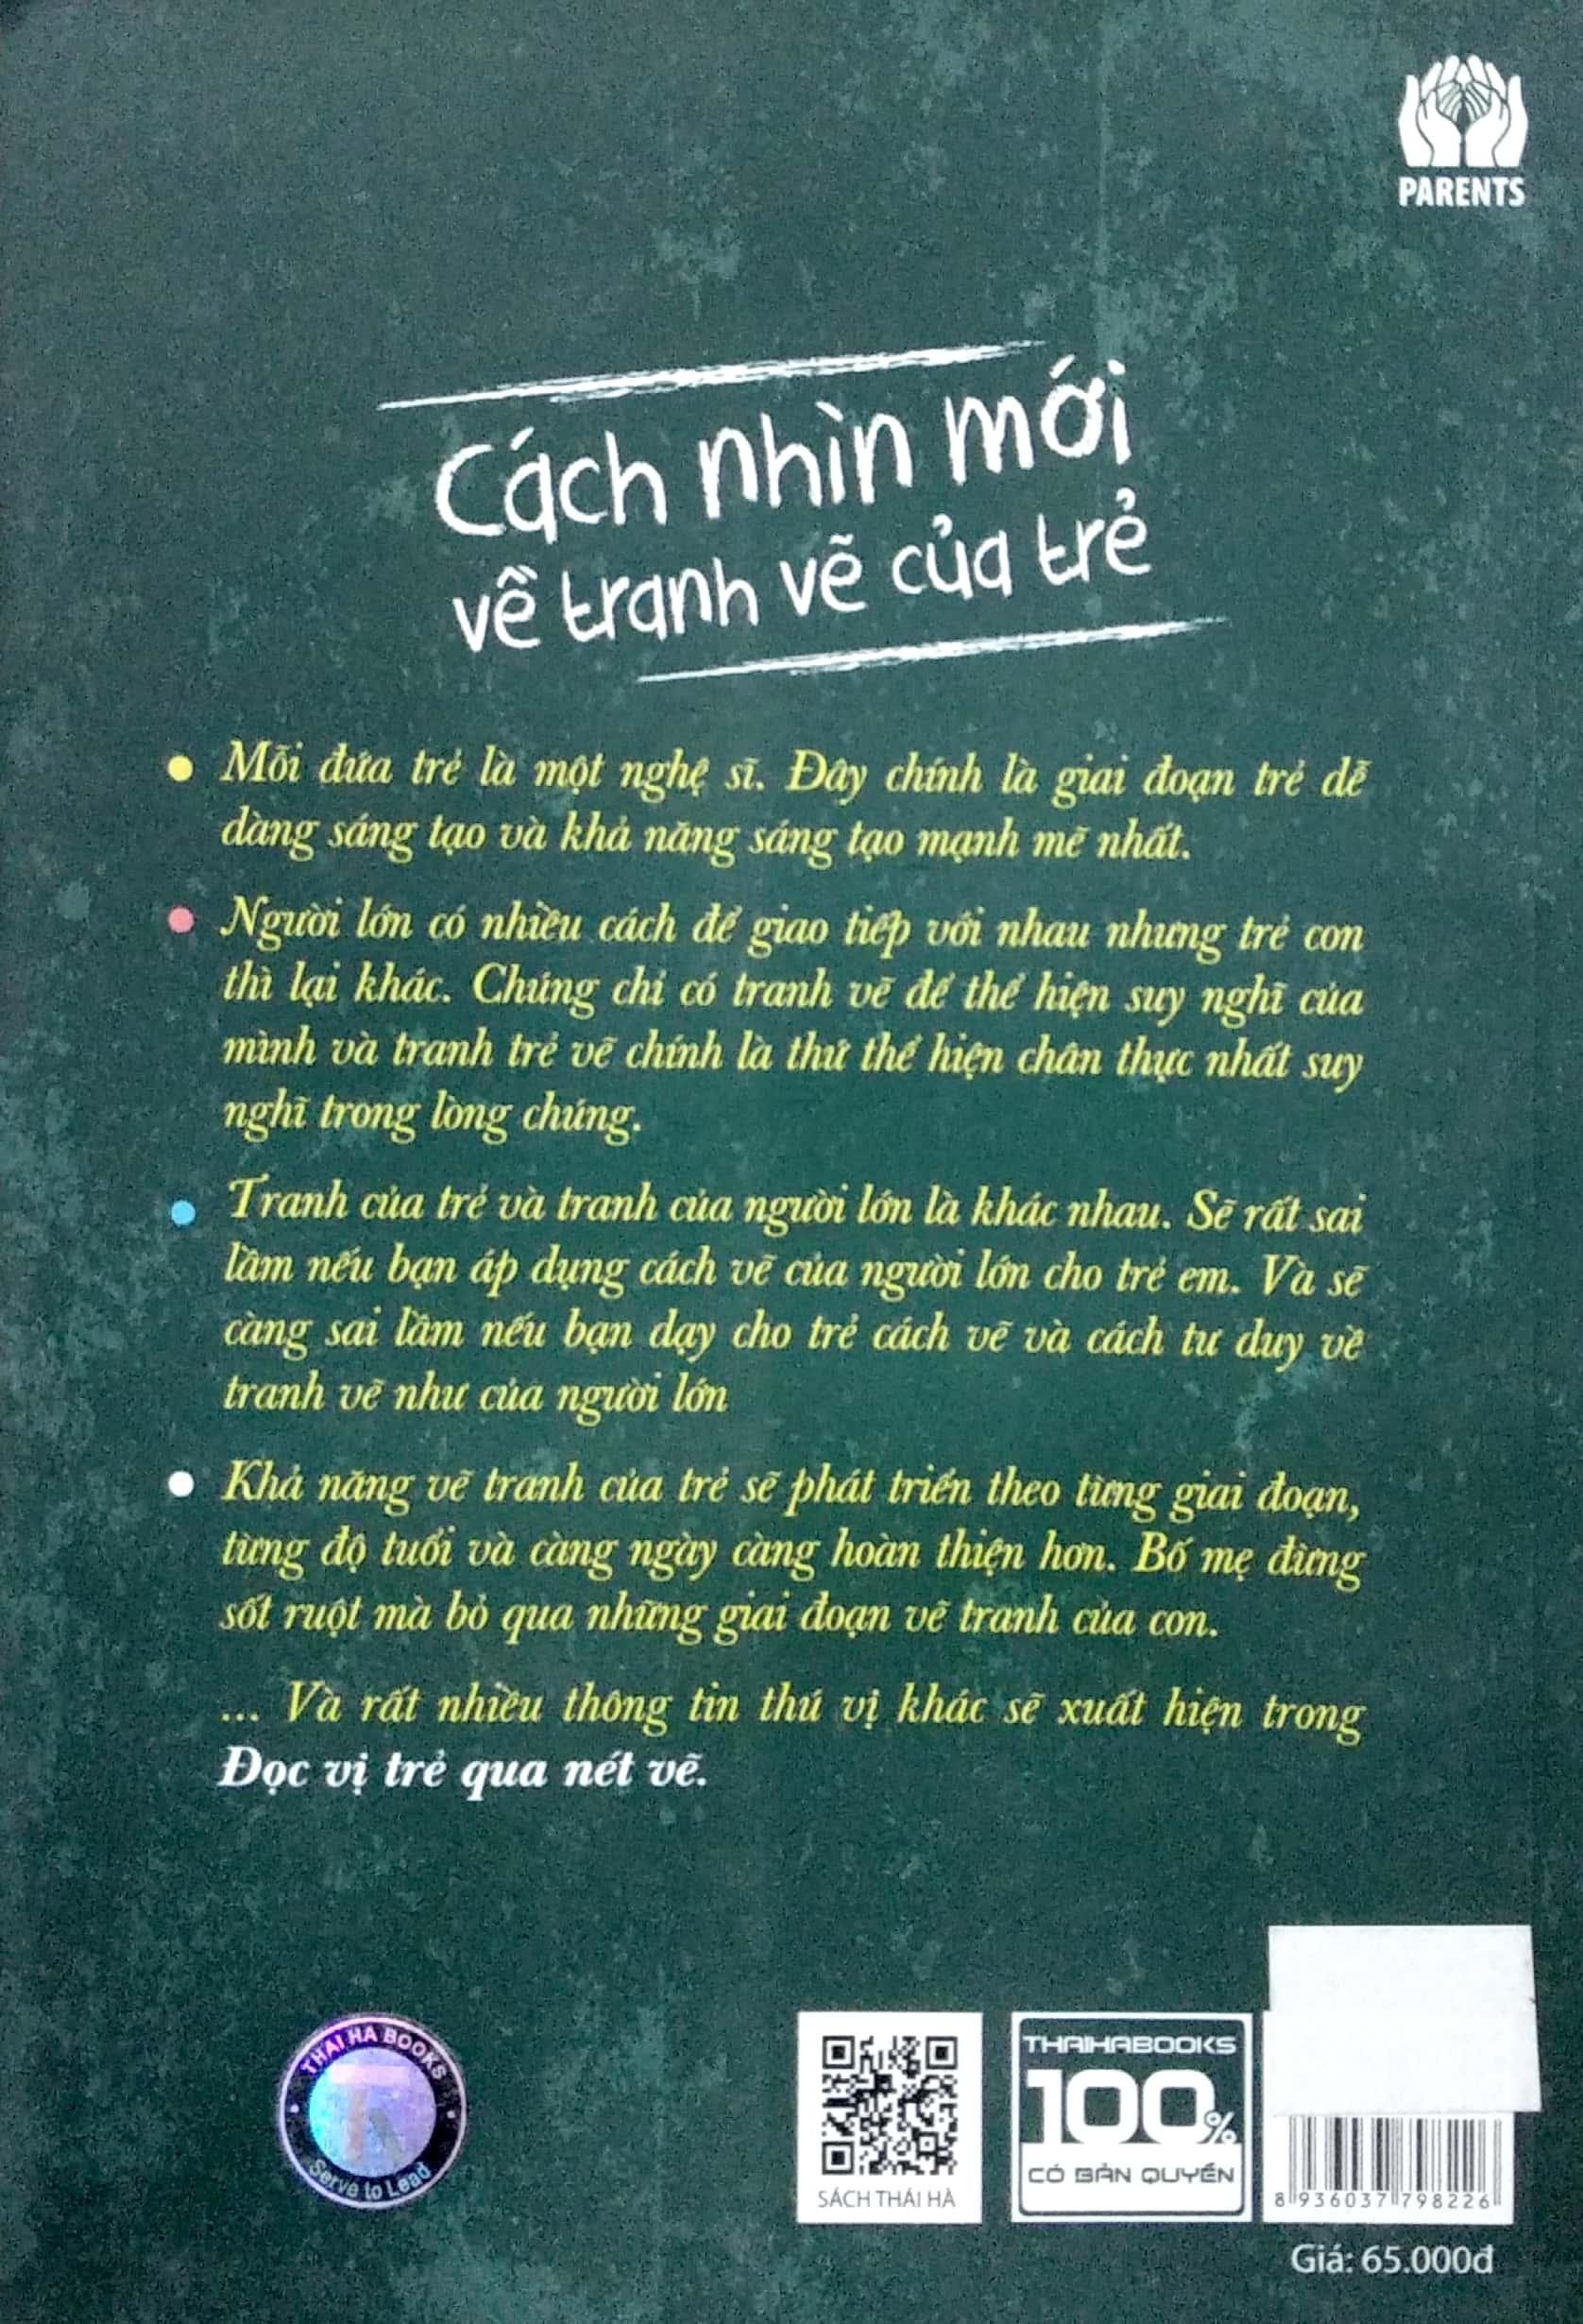 PARENTS
Cách nhìn mới
về tranh vẽ của trẻ
Mỗi đứa trẻ là một nghệ sĩ. Đây chính là giai đoạn trẻ dễ
dàng sáng tạo và khả năng sáng tạo mạnh mẽ nhất.
Người lớn có nhiều cách để giao tiếp với nhau nhưng trẻ con
thì lại khác. Chúng chỉ có tranh vẽ để thể hiện suy nghĩ của
mình và tranh trẻ vẽ chính là thứ thể hiện chân thực nhất suy
nghĩ trong lòng chúng.
Tranh của trẻ và tranh của người lớn là khác nhau. Sẽ rất sai
lầm nếu bạn áp dụng cách vẽ của người lớn cho trẻ em. Và sẽ
càng sai lầm nếu bạn dạy cho trẻ cách vẽ và cách tư duy về
tranh vẽ như của người lớn
Khả năng vẽ tranh của trẻ sẽ phát triển theo từng giai đoạn,
từng độ tuổi và càng ngày càng hoàn thiện hơn. Bố mẹ đừng
sốt ruột mà bỏ qua những giai đoạn vẽ tranh của con.
... Và rất nhiều thông tin thú vị khác sẽ xuất hiện trong
Đọc vị trẻ qua nét vẽ.
THAI HA BOOKS
Serve to Lead
SÁCH THÁI HÀ
THAIHABOOKS
100%
CÓ BẢN QUYỀN
8936037798226
Giá: 65.000đ